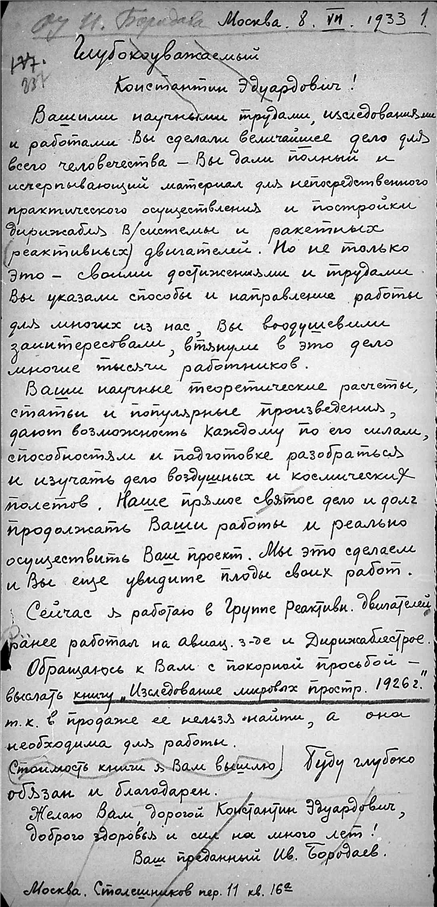 от И. Бородаева Москва. 8. VII. 1933 1.
177.
237
Глубокоуважаемый
Константин Эдуардович!
Вашими научными трудами, изследованиями
и работами Вы сделали величайшее дело для
всего человечества – Вы дали полный и
исчерпывающий материал для непосредственного
практического осуществления и постройки
дирижабля В/системы и ракетных
(реактивных) двигателей. Но не только
это – своими достижениями и трудами
Вы указали способы и направление работы
для многих из нас, Вы воодушевили
заинтересовали, втянули в это дело
многие тысячи работников.
Ваши научные теоретические расчеты,
статьи и популярные произведения,
дают возможность каждому по его силам,
способностям и подготовке разобраться
и изучать дело воздушных и космических
полетов. Наше прямое святое дело и долг
продолжать Ваши работы и реально
осуществить Ваш проект. Мы это сделаем
и Вы еще увидите плоды своих работ.
Сейчас я работаю в Группе Реактивн. двигателей,
ранее работал на авиац. з-де и Дирижаблестрое.
Обращаюсь к Вам с покорной просьбой –
выслать книгу „Изследование мировых простр. 1926 г.“
т.к. в продаже ее нельзя найти, а она
необходима для работы.
(Стоимость книги я Вам вышлю) Буду глубоко
обязан и благодарен.
Желаю Вам, дорогой Константин Эдуардович,
доброго здоровья и сил на много лет!
Ваш преданный Ив. Бородаев.
Москва. Столешников пер. 11 кв. 16а